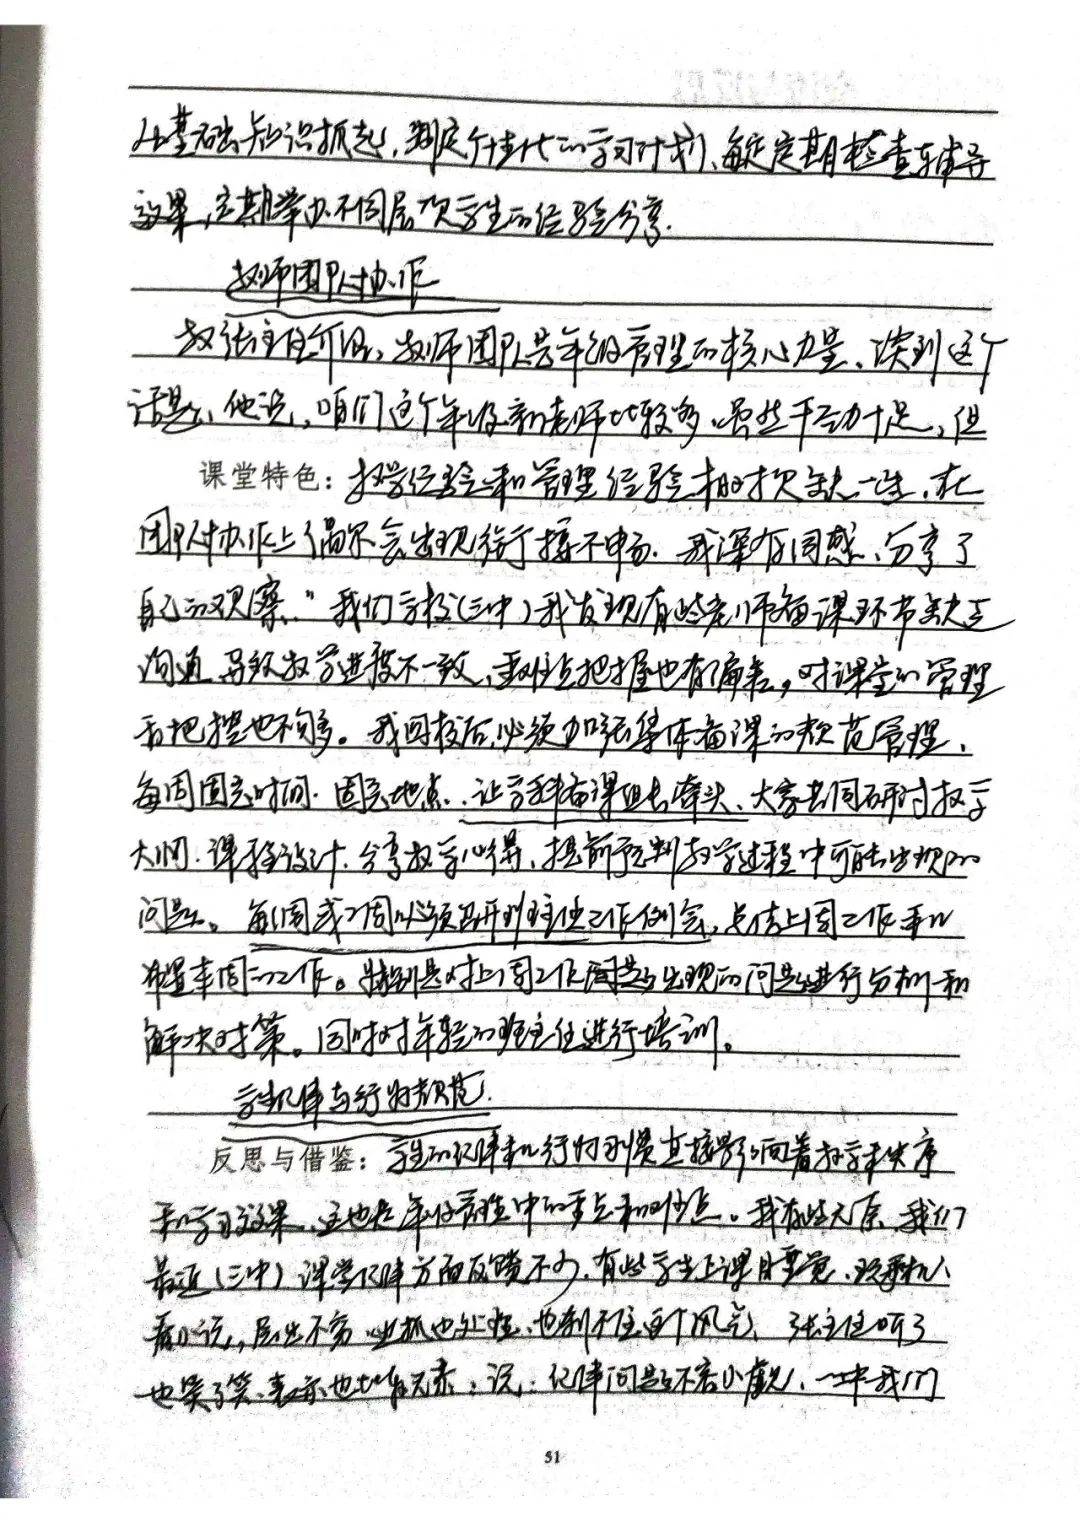 从基础知识抓起，制定个性化的学习计划，每定定期检查辅导
效果，定期举办不同层次学生的经验分享.
教师团队协作
教张主任介绍，教师团队是年级管理的核心力量、谈到这个
话题，他说，咱们这个年级新老师比较多，虽然干劲十足，但
课堂特色：教学经验和管理经验相对欠缺一些，在
团队协作上偶尔会出现衔接不畅. 我深有同感、分享了
自己的观察，"我们学校(三中)我发现有些老师备课环节缺乏
沟通，导致教学进度不一致，重难点把握也有偏差，对课堂的管理
看把握也不够。我回校后，必须加强集体备课的规范管理，
每周固定时间. 固定地点，让学科备课组长牵头、大家共同研讨教学
大纲. 课程设计. 分享教学心得，提前预判教学过程中可能出现的
问题。每1周或2周必须召开班主任工作例会，总结上周工作和
布置本周的工作。特别是对上周工作问题出现的问题进行分析和
解决对策。同时对年轻的班主任进行培训。
学生纪律与行为规范.
反思与借鉴：学生的纪律和行为习惯直接影响着教学秩序
和学习效果，这也是年级管理中的重点和难点。我有些无奈，我们
最近(三中)课堂纪律方面反馈不少，有些学生上课睡觉、玩手机、
看小说，层出不穷，也抓也处理，也刹不住这个风气、张主任听了
也笑了笑，表示也十分无奈，说：纪律问题不容小觑，一中我们
51